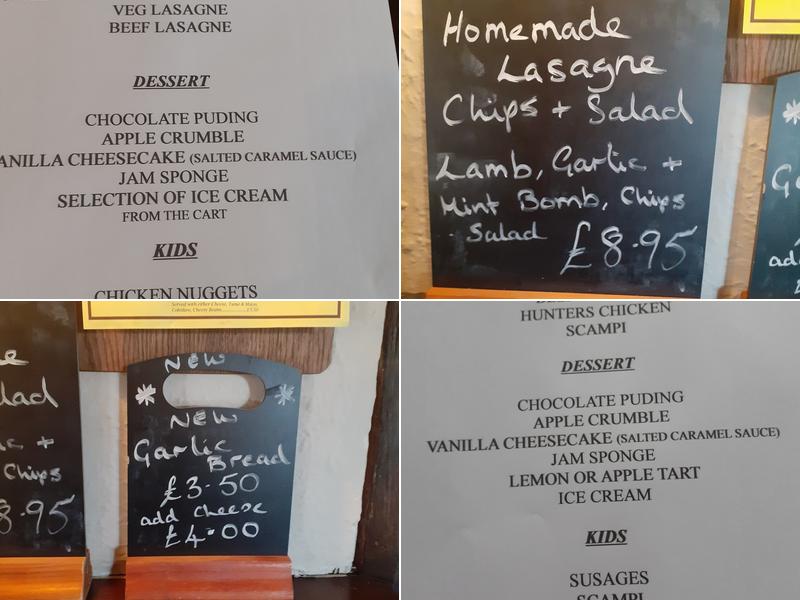 VEG LASAGNE
BEEF LASAGNE
DESSERT
CHOCOLATE PUDING
APPLE CRUMBLE
ANILLA CHEESECAKE (SALTED CARAMEL SAUCE)
JAM SPONGE
SELECTION OF ICE CREAM
FROM THE CART
KIDS
CHICKEN NUGGETS
Homemade
Lasagne
Chips + Salad
Lamb, Garlic +
Mint Bomb, Chips
Salad £8.95
NEW
NEW
Garlic
Bread
£3.50
add cheese
£4.00
Chips
8.95
HUNTERS CHICKEN
SCAMPI
DESSERT
CHOCOLATE PUDING
APPLE CRUMBLE
VANILLA CHEESECAKE (SALTED CARAMEL SAUCE)
JAM SPONGE
LEMON OR APPLE TART
ICE CREAM
KIDS
SUSAGES
SCAMPI